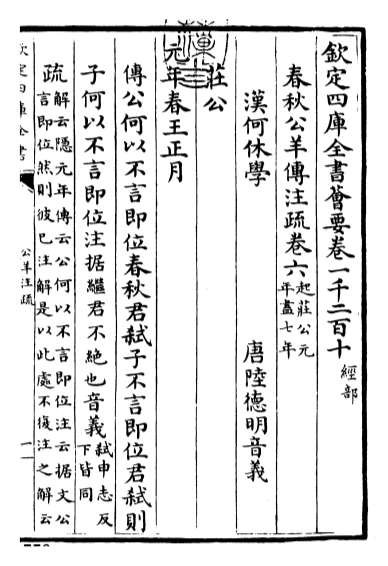 欽定四庫全書薈要卷一千二百十
經部
春秋公羊傳注疏卷六
起莊公元
年盡七年
漢何休學
唐陸德明音義
莊公
元年春王正月
傳公何以不言即位春秋君弑子不言即位君弑則
子何以不言即位注据繼君不絶也音義
弑申志反
下皆同
疏
解云隱元年傳云公何以不言即位注云据文公
言即位然則彼已注解是以此處不復注之解云
欽定四庫全書
公羊注疏
一